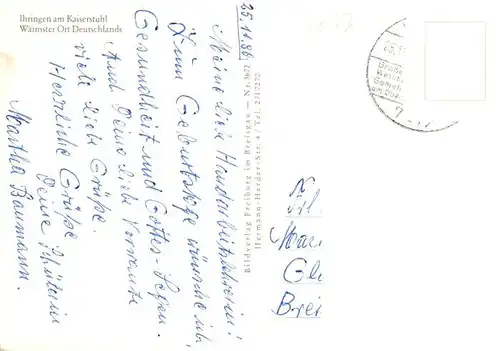 Ihringen am Kaiserstuhl
Wärmster Ort Deutschlands
25.11.86
Meine liebe Handarbeitslehrerin!
Zum Geburtstage wünsche ich
Gesundheit und Gottes Segen.
Auch Deine liebe Verwandte
viele liebe Grüße.
Herzliche Grüße
Deine Schülerin
Martha Baumann.
Bildverlag Freiburg im Breisgau — Nr. 3672
Hermann-Herder-Str. 4 / Tel.
Große
7
Mar
Gle
Brei